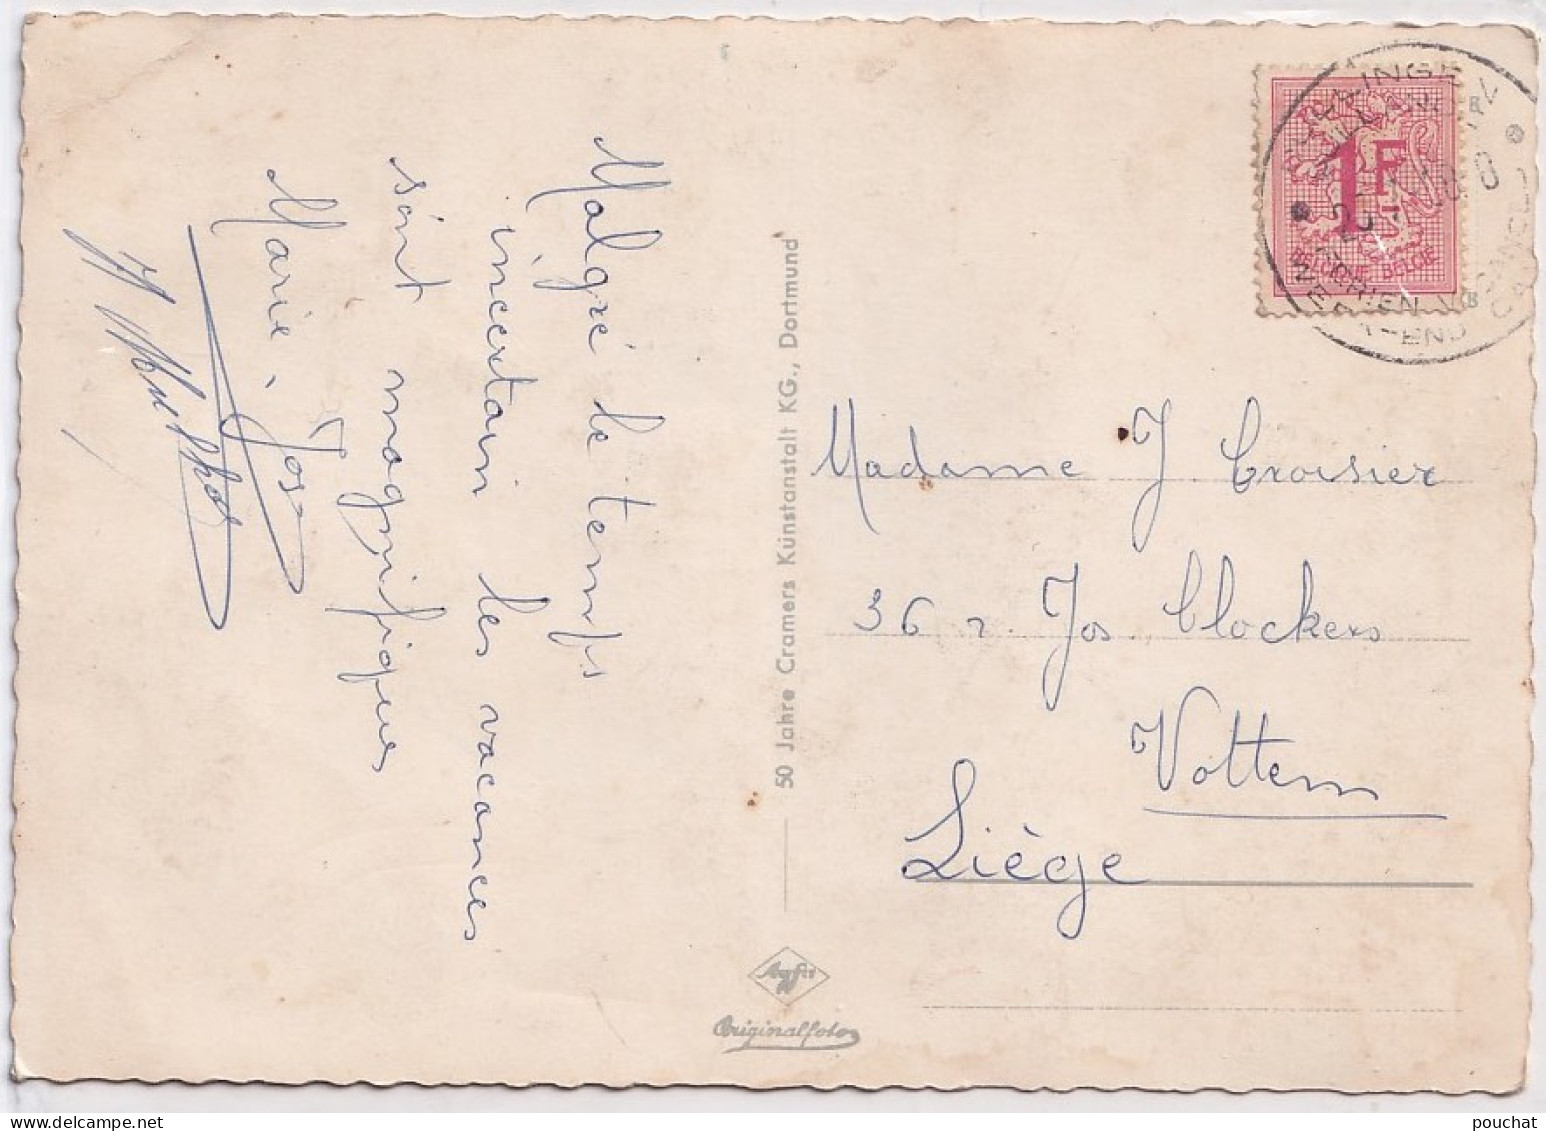 Malgré le temps
incertain les vacances
sont magnifiques
Marie-José
50 Jahre Cramers Kunstanstalt KG., Dortmund
Agfa
Originalfoto
1F
BELGIQUE BELGIE
Madame J Croisier
36 r. Jos Clockers
Vottem
Liège
pouchat